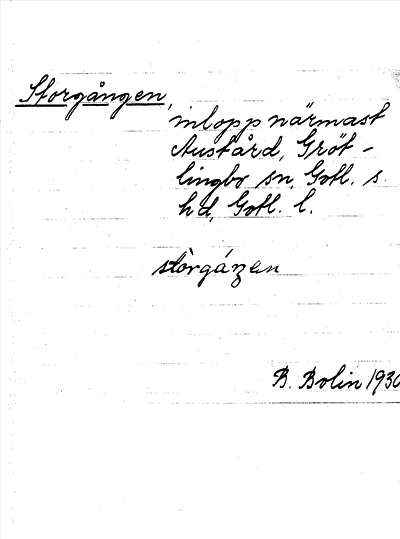 Storgången,
inlopp närmast
Austård, Gröt-
lingbo sn, Gotl. s
hd, Gotl. l.
stòrgáŋen
B. Bolin 1930